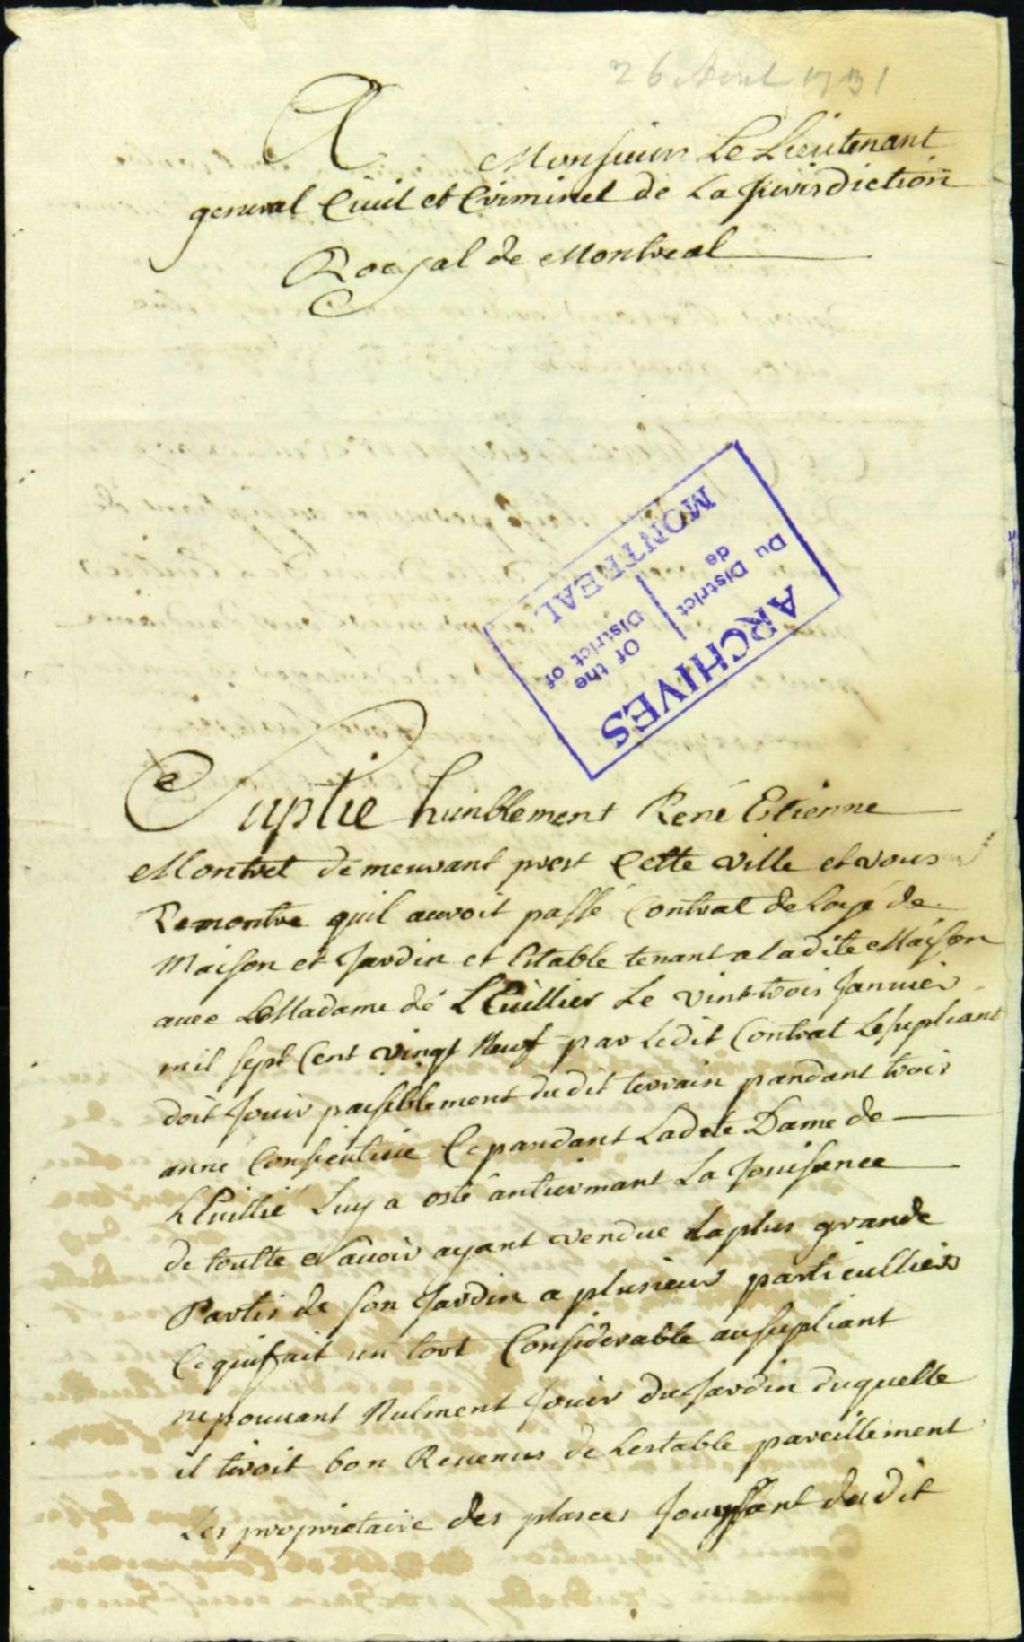 26 Avril 1731
A Monsieur Le Lieutenant
general Civil et Criminel de La Jurisdiction
Royal de Montreal
ARCHIVES
Of the
District of
Du District
de
MONTREAL
Suplie humblement René Etienne
Montret demeurant prest Cette ville et vous
Remontre quil auroit passé Contrat de Loyé de
Maison et Jardin et Estable tenant a ladite Maison
avec LeMadame de LEuillier Le vint trois Janvier
mil sept Cent vingt Neuf par Ledit Contrat Lesupliant
doit Jouir paisiblement du dit terrain pandant trois
anné Consecutive Cepandant Ladite Dame de
LEuillié Luy a osté antiermant La Jouisance
de toutte a savoir ayant vendue La plus grande
Partis de son Jardin a plusieur particulliers
Ce qui fait un tort Considerable au supliant
ne pouvant Nulment Jouir du Jardin duquelle
il tiroit bon Revenus de Lestable pareillement
Les proprietaire des places Jouissant du dit